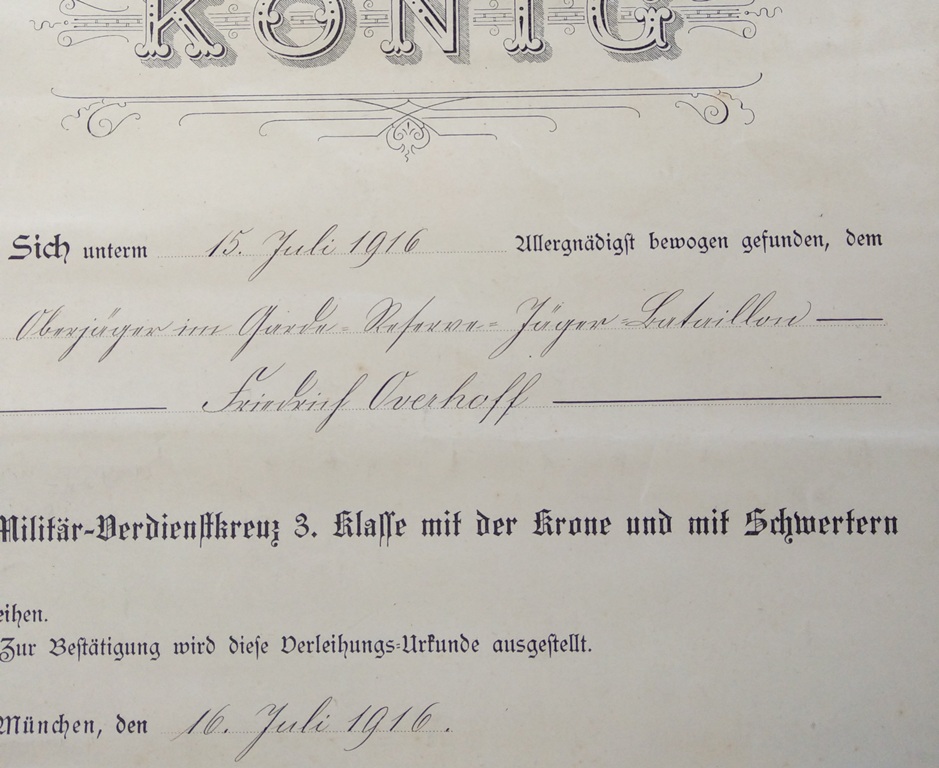 KÖNIG
Sich unterm 15. Juli 1916 Allergnädigst bewogen gefunden, dem
Oberjäger im Garde-Reserve-Jäger-Bataillon
Friedrich Overhoff
Militär-Verdienstkreuz 3. Klasse mit der Krone und mit Schwertern
eihen.
Zur Bestätigung wird diese Verleihungs-Urkunde ausgestellt.
München, den 16. Juli 1916.